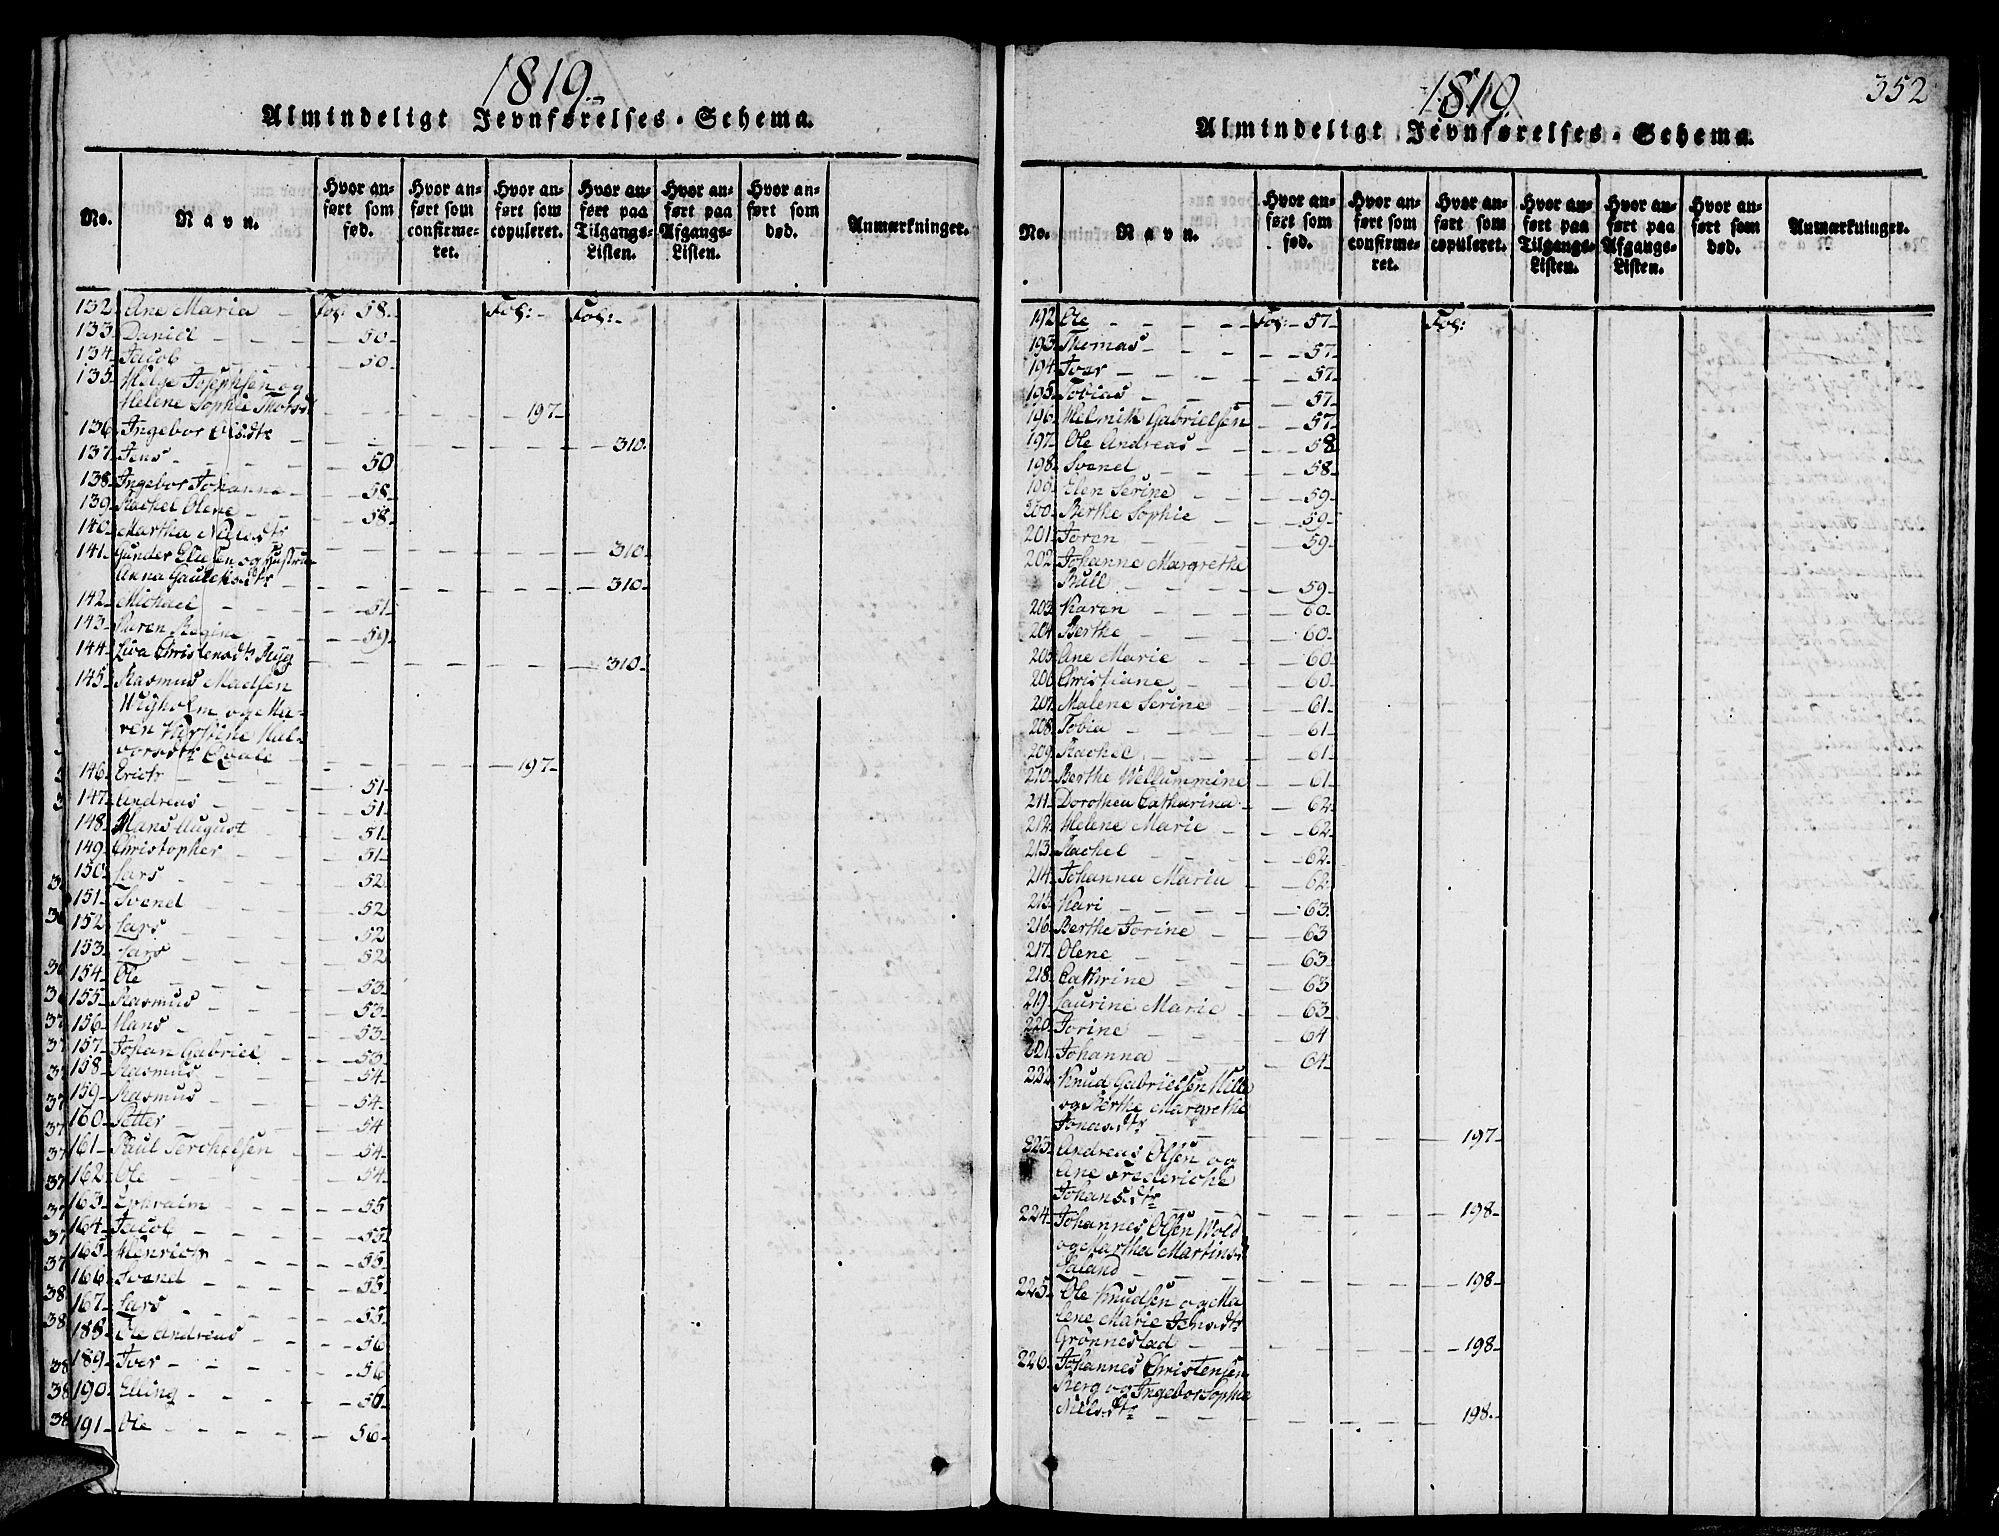 1819
Almindeligt Jevnførelses-Schema.
No.
Navn.
Hvor an-
ført som
fød.
Hvor an-
ført som
confirme-
ret.
Hvor an-
ført som
copuleret.
Hvor an-
ført paa
Tilgangs-
Listen.
Hvor an-
ført paa
Afgangs-
Listen.
Hvor an-
ført som
død.
Anmærkninger.
132 Ane Maria - Fol: 58- Fol: - Fol: -
133 Daniel - 50-
134 Jacob - 50-
135 Helge Josephsen og
Helene Sophie Thorsd - 197-
136 Ingebor Olsdtr - 310-
137 Jens - 50
138 Ingebor Johanna - 58-
139 Rachel Olene - 58-
140 Martha Nielsdtr
- 310-
141 Gunder Elielsen og Hustrue
Anna Gautesdtr - 310-
142 Michael - 51-
143 Karen Regine - 59-
144 Liva Christensdtr Ryg - 310-
145 Rasmus Madsen
Wigholm og Ma-
ren Kirstine Hal-
vorsdtr Qvale - 197-
146 Erich - 51-
147 Andreas - 51-
148 Hans August - 51-
149 Christopher - 51-
150 Lars - 52
151 Svend - 52
152 Lars - 52
153 Lars - 52
154 Ole - 53-
155 Rasmus - 53-
156 Hans - 53-
157 Johan Gabriel - 53-
158 Rasmus - 54-
159 Rasmus - 54-
160 Petter - 54
161 Paul Terchelsen - 54-
162 Ole - 54-
163 Ephraim - 55
164 Jacob - 55-
165 Henrich - 55-
166 Svend - 55-
167 Lars - 55-
188 Ole Andreas - 56
189 Iver - 56
190 Elling - 56-
191 Ole - 56-
352
1819
Almindeligt Jevnførelses-Schema.
No.
Navn.
Hvor an-
ført som
fød.
Hvor an-
ført som
confirme-
ret.
Hvor an-
ført som
copuleret.
Hvor an-
ført paa
Tilgangs-
Listen.
Hvor an-
ført paa
Afgangs-
Listen.
Hvor an-
ført som
død.
Anmærkninger.
192 Ole - Fol: - 57- Fol:
193 Thomas - 57-
194 Iver - 57-
195 Tobias - 57-
196 Helmik Gabrielsen - 57-
197 Ole Andreas - 58
198 Svend - 58-
199 Elen Serine - 59-
200 Berthe Sophie - 59-
201 Joren - 59-
202 Johanne Margrethe
Bull - 59-
203 Karen - 60-
204 Berthe - 60-
205 Ane Marie - 60
206 Christiane - 60-
207 Malene Serine - 61-
208 Tobia - 61-
209 Rachel - 61-
210 Berthe Wellummine - 61-
211 Dorothea Catharina - 62-
212 Helene Marie - 62-
213 Rachel - 62-
214 Johanna Maria - 62-
215 Kari - 63-
216 Berthe Jorine - 63
217 Olene - 63-
218 Cathrine - 63
219 Laurine Marie - 63-
220 Jorine - 64
221 Johanna - 64-
222 Knud Gabrielsen Hille
og Berthe Margrethe
Jonasdtr - 197-
223 Andreas Olsen og
Ane Frederiche
Johansdtr - 198-
224 Johannes Olsen Wold
og Martha Martinsd
Laland - 198-
225 Ole Knudsen og Ma
lene Marie Jensdtr
Grönnestad - 198-
226 Johannes Christensen
Berg og Ingebor Sophie
Nielsdtr - 198-